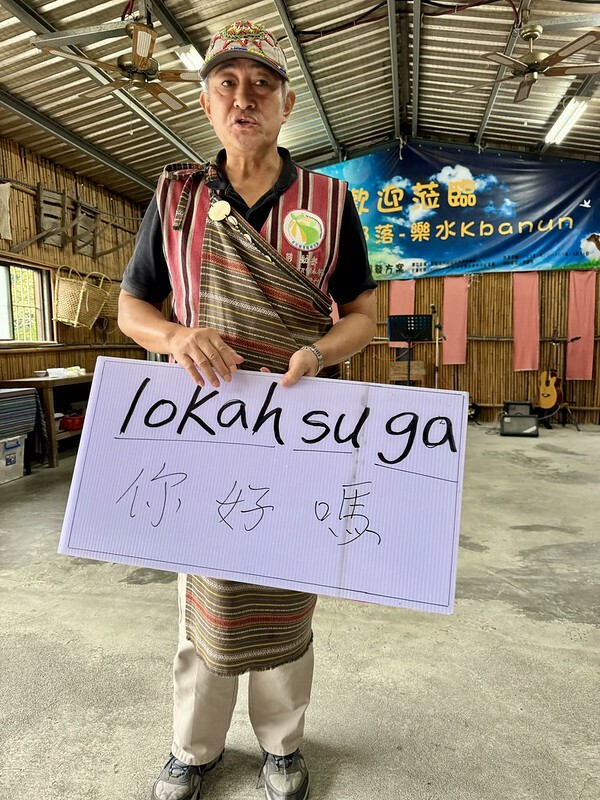 歡迎蒞臨
部落-樂水Kbanun
發方案
lokah su ga
你好嗎